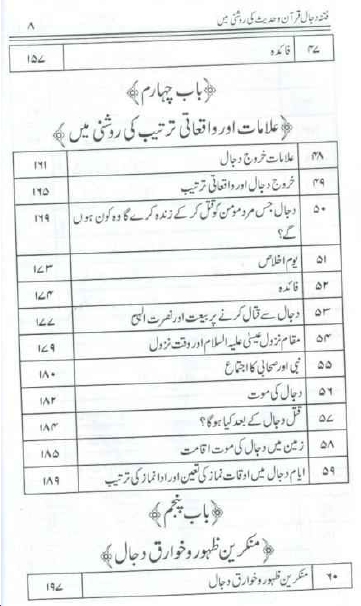 فتنہ دجال قرآن و حدیث کی روشنی میں ۸
۴۷ فائدہ ۱۵۷
﴿باب چہارم﴾
﴿علامات اور واقعاتی ترتیب کی روشنی میں﴾
۴۸ علامات خروج دجال ۱۶۱
۴۹ خروج دجال اور واقعاتی ترتیب ۱۶۵
۵۰ دجال جس مرد مومن کو قتل کر کے زندہ کرے گا وہ کون ہوں ۱۶۹
گے؟
۵۱ یوم اخلاص ۱۷۳
۵۲ فائدہ ۱۷۴
۵۳ دجال سے قتال کرنے پر بیعت اور نصرت الہی ۱۷۷
۵۴ مقام نزول عیسیٰ علیہ السلام اور وقت نزول ۱۷۹
۵۵ نبی اور صحابی کا اجتماع ۱۸۰
۵۶ دجال کی موت ۱۸۲
۵۷ قتل دجال کے بعد کیا ہوگا؟ ۱۸۴
۵۸ زمین میں دجال کی موت اقامت ۱۸۵
۵۹ ایام دجال میں اوقات نماز کی تعین اور ادا نماز کی ترتیب ۱۸۹
﴿باب پنجم﴾
﴿منکرین ظہور و خوارق دجال﴾
۶۰ منکرین ظہور و خوارق دجال ۱۹۷